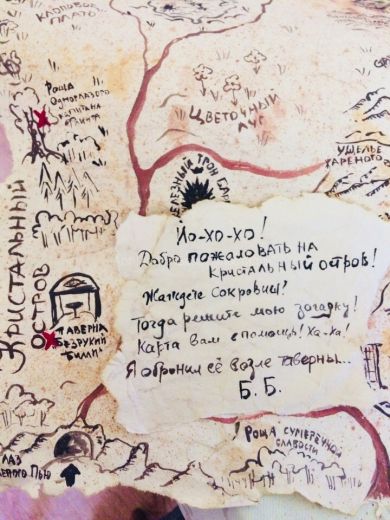 КЛ
ПЛАТО
РОЩА
ОДНОГЛАЗОГО
КАПИТАНА
ЦВЕТОЧНЫЙ
ЛУГ
УЩЕЛЬЕ
ЖАРЕНОГО
ЖЕЛЕЗНЫЙ ТРОН
КРИСТАЛЬНЫЙ
ОСТРОВ
ТАВЕРНА
БЕЗРУКИЙ
БИЛЛИ
Йо-хо-хо!
Добро пожаловать на
Кристальный остров!
Жаждете сокровищ?
Тогда решите мою загадку!
Карта вам в помощь! Ха-ха!
Я обронил её возле таверны...
Б. Б.
РОЩА СУМЕРЕЧНОЙ
СЛАБОСТИ
ЛАЗ
ПЬЮ